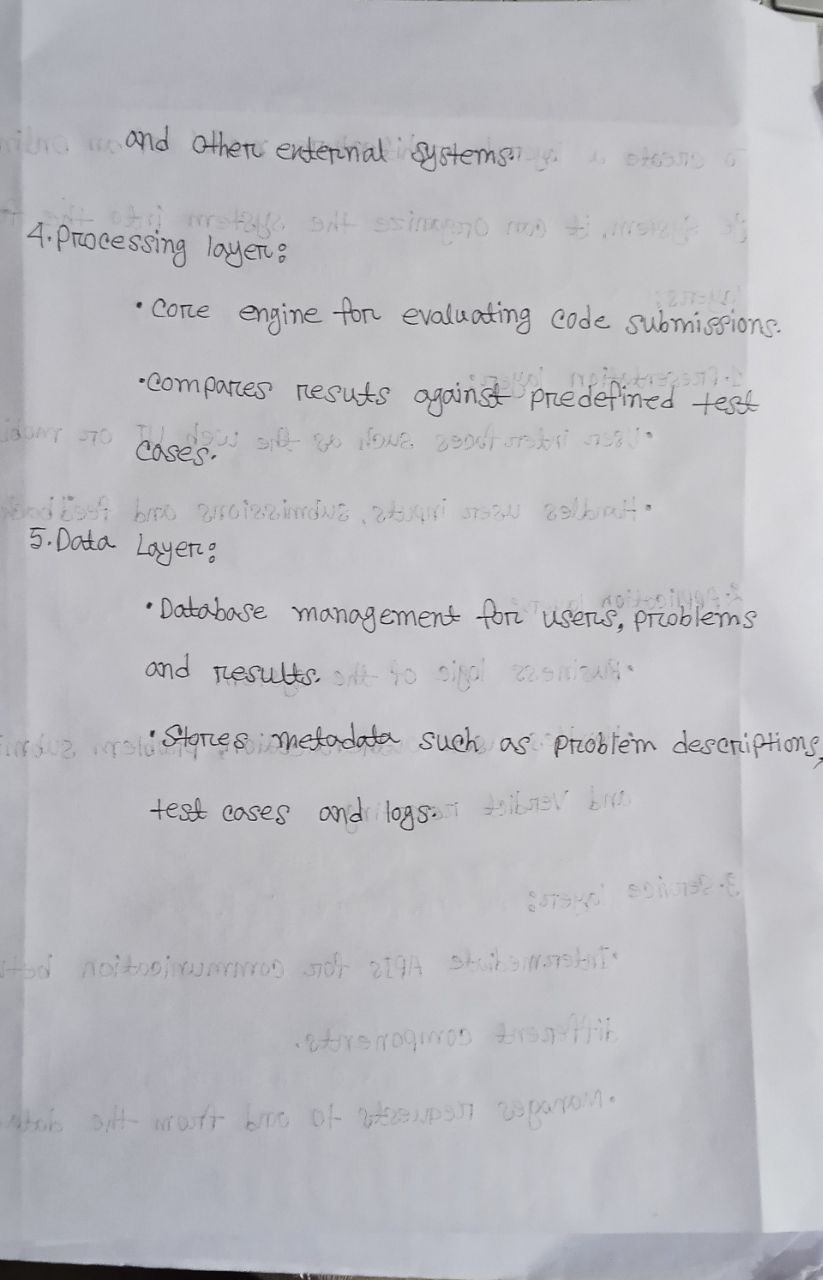 and other external systems.
4. Processing layer:
• Core engine for evaluating code submissions.
• compares resuts against predefined test
cases.
5. Data Layer:
• Database management for users, problems
and results.
• Stores metadata such as problem descriptions,
test cases and logs.